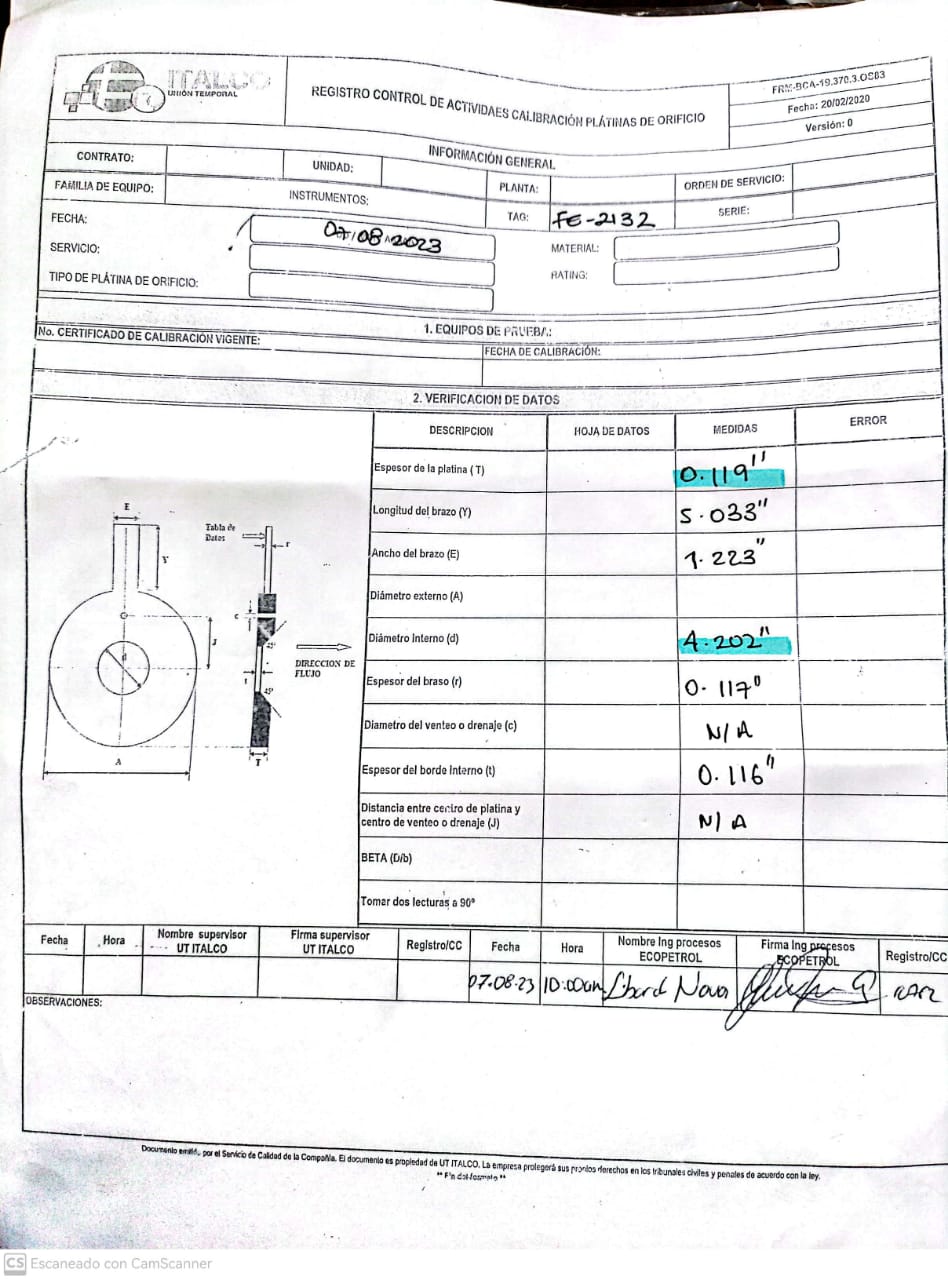 ITALCO
UNIÓN TEMPORAL
REGISTRO CONTROL DE ACTIVIDAES CALIBRACIÓN PLÁTINAS DE ORIFICIO
FRM-BCA-19.370.3.OS83
Fecha: 20/02/2020
Versión: 0
INFORMACIÓN GENERAL
CONTRATO: UNIDAD: PLANTA: ORDEN DE SERVICIO:
FAMILIA DE EQUIPO: INSTRUMENTOS: TAG: FE-2132 SERIE:
FECHA: 07/08/2023 MATERIAL:
SERVICIO: RATING:
TIPO DE PLÁTINA DE ORIFICIO:
1. EQUIPOS DE PRUEBA:
No. CERTIFICADO DE CALIBRACIÓN VIGENTE: FECHA DE CALIBRACIÓN:
2. VERIFICACION DE DATOS
DESCRIPCION HOJA DE DATOS MEDIDAS ERROR
Espesor de la platina (T) 0.119"
Longitud del brazo (Y) 5.033"
Ancho del brazo (E) 1.223"
Diámetro externo (A)
Diámetro Interno (d) 4.202"
Espesor del braso (r) 0.117"
Diametro del venteo o drenaje (c) N/A
Espesor del borde Interno (t) 0.116"
Distancia entre centro de platina y
centro de venteo o drenaje (J) N/A
BETA (D/b)
Tomar dos lecturas a 90º
E
Tabla de
Datos
r
Y
c
J
45º
d
DIRECCION DE
FLUJO
t
45º
A
T
Fecha Hora Nombre supervisor UT ITALCO Firma supervisor UT ITALCO Registro/CC Fecha Hora Nombre Ing procesos ECOPETROL Firma Ing procesos ECOPETROL Registro/CC
07.08.23 10:00am
OBSERVACIONES:
Documento emitid. por el Servicio de Calidad de la Compañía. El documento es propiedad de UT ITALCO. La empresa protegerá sus propios derechos en los tribunales civiles y penales de acuerdo con la ley.
** Fin del formato **
CS Escaneado con CamScanner